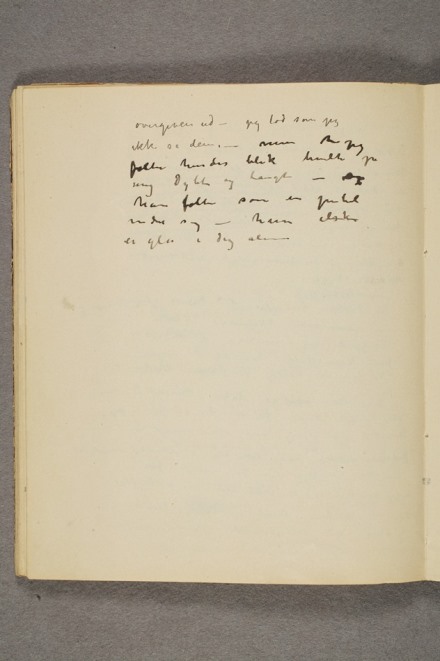 overgiven ud — jeg lod som jeg
ikke så dem. — men jeg
følte hendes blik hvile på
mig dybt og længe —
han følte som en jubel
inde sig — hun elsker
er glas i dag